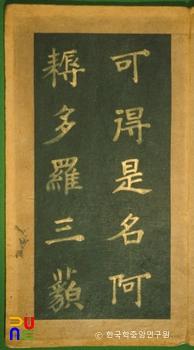 可得是名阿
耨多羅三藐
ⓒ 한국학중앙연구원